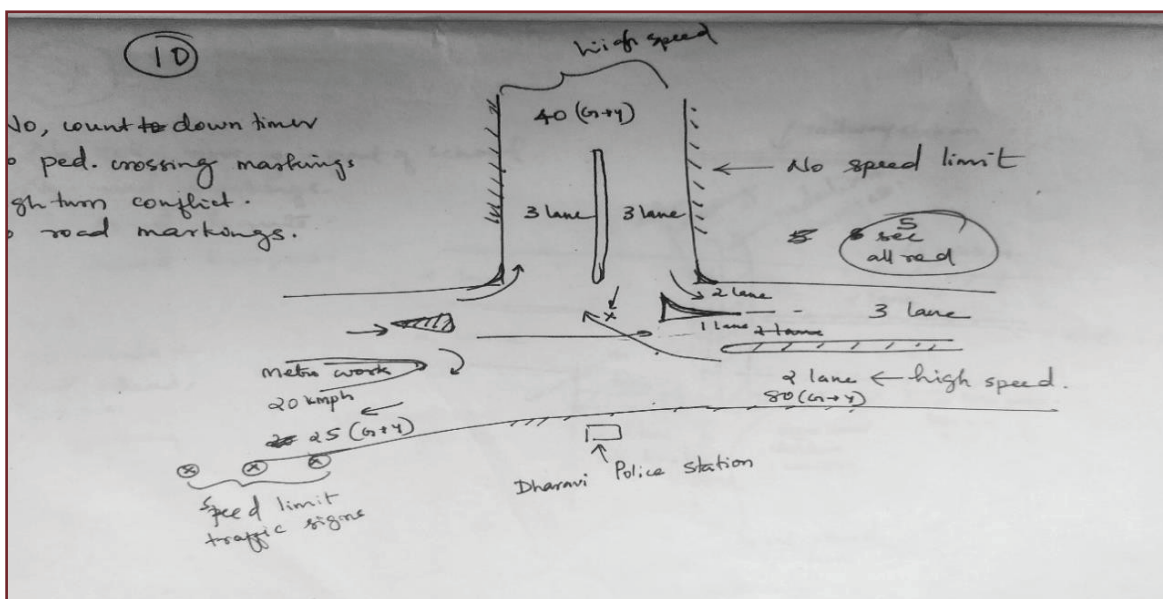 10
high speed
No, count down timer
ped. crossing markings
gh turn conflict.
road markings.
40 (G+Y)
No speed limit
3 lane
3 lane
5 sec
all red
2 lane
3 lane
1 lane
2 lane
Metro work
20 kmph
2 lane ← high speed.
80 (G+Y)
25 (G+Y)
Dharavi Police station
Speed limit
traffic signs